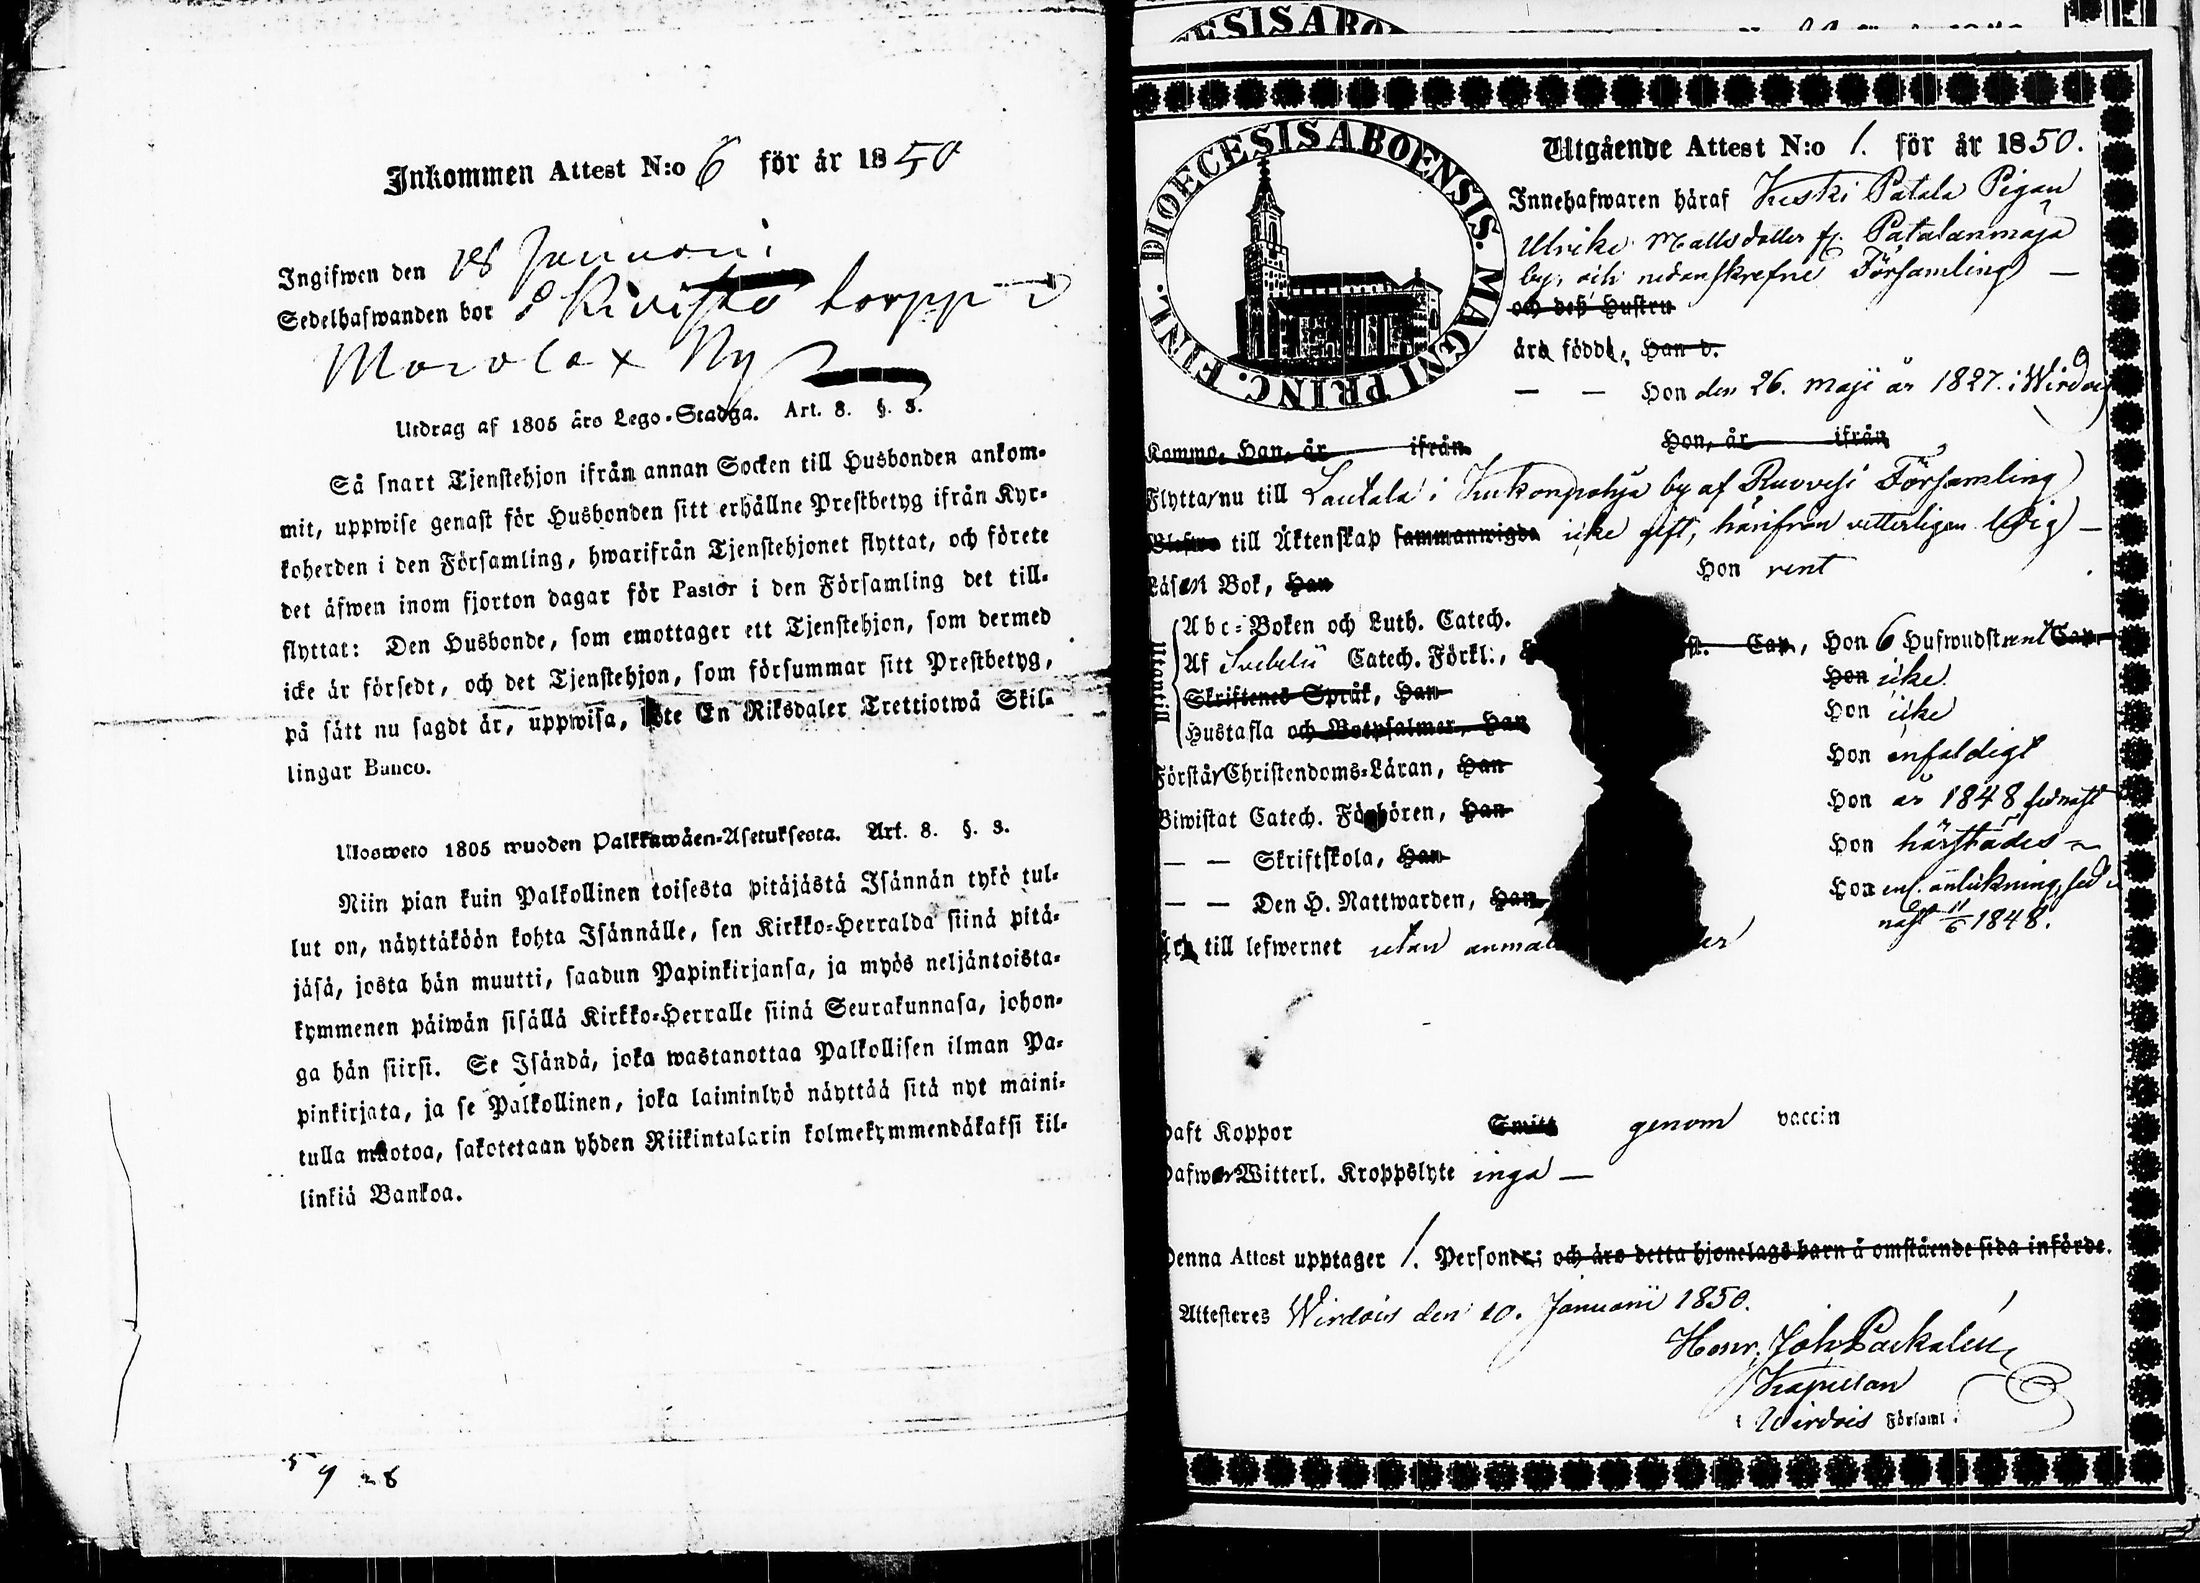 Inkommen Attest N:o 6 för år 1850
Ingifwen den 18 Januari
Sedelhafwanden bor i Kivistö torpp i
Utdrag af 1805 års Lego-Stadga. Art. 8. §. 3.
Så snart Tjenstehjon ifrån annan Socken till Husbonden ankom-
mit, uppwise genast för Husbonden sitt erhållne Prestbetyg ifrån Kyr-
koherden i den Församling, hwarifrån Tjenstehjonet flyttat, och förete
det äfwen inom fjorton dagar för Pastor i den Församling det till-
flyttat: Den Husbonde, som emottager ett Tjenstehjon, som dermed
icke är försedt, och det Tjenstehjon, som försummar sitt Prestbetyg,
på sätt nu sagdt är, uppwisa, böte En Riksdaler Trettiotwå Skil-
lingar Banco.
Ulosweto 1805 wuoden Palkkawäen-Asetuksesta. Art. 8. §. 3.
Niin pian kuin Palkollinen toisesta pitäjästä Isännän tykö tul-
lut on, näyttäköön kohta Isännälle, sen Kirkko-Herralda siinä pitä-
jäsä, josta hän muutti, saadun Papinkirjansa, ja myös neljäntoista-
kymmenen päiwän sisällä Kirkko-Herralle siinä Seurakunnasa, johon-
ga hän siirsi. Se Isändä, joka wastanottaa Palkollisen ilman Pa-
pinkirjata, ja se Palkollinen, joka laiminlyö näyttää sitä nyt maini-
tulla muotoa, sakotetaan yhden Riikintalarin kolmekymmendäkaksi kil-
linkiä Bankoa.
DIOECESIS ABOENSIS. MAGNI PRINC. FINL.
Utgående Attest N:o 1. för år 1850.
Innehafwaren häraf Keski Patala Pigan
Ulrika Mattsdotter fr. Patalanmäja
by, och nedanskrefne Församling —
och deß Hustru
ära född, Han d.
— — Hon den 26. Maji år 1827. i Wirdois
Kommo, Han, år ifrån Hon, år ifrån
Flytta nu till Lautala i Kukonpohja by af Ruovesi Församling
till Äktenskap sammanwigda icke gift, härifrån vetterligen ledig —
Läsa i Bok, Han Hon rent
Utantill
Abc-Boken och Luth. Catech.
Af Svebelii Catech. Förkl., Cap., Hon 6 Hufwudst. rent Cap.
Skriftenes Språk, Han Hon icke
Hustafla och Botpsalmer, Han Hon icke
Förstår Christendoms-Läran, Han Hon enfaldigt
Biwistat Catech. Förhören, Han Hon år 1848 sednast
— — Skriftskola, Han Hon härstädes
— — Den H. Nattwarden, Han Hon enl. anteckning sed-
nast 11/6 1848.
till lefwernet utan
Haft Koppor Smitt genom vaccin
Hafwer Witterl. Kroppslyte inga —
Denna Attest upptager 1. Personer; och äro detta hjonelags barn å omstående sida införde.
Attesteras Wirdois den 10. Januarii 1850.
Henr. Joh. Packalén
Kapellan
i Wirdois Församl.